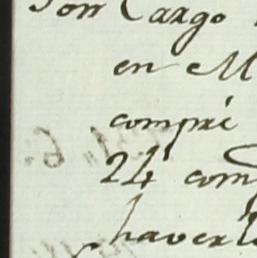 Cargo
en M
compré
24 com
haverl